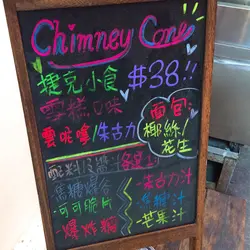 Chimney Cone
捷克小食 $38!!
雪糕口味
雲呢嗱/朱古力
面包:
椰絲/
花生
配料
各選1
-朱古力汁
-可可脆片
-焦糖汁
-爆炸糖
-芒果汁